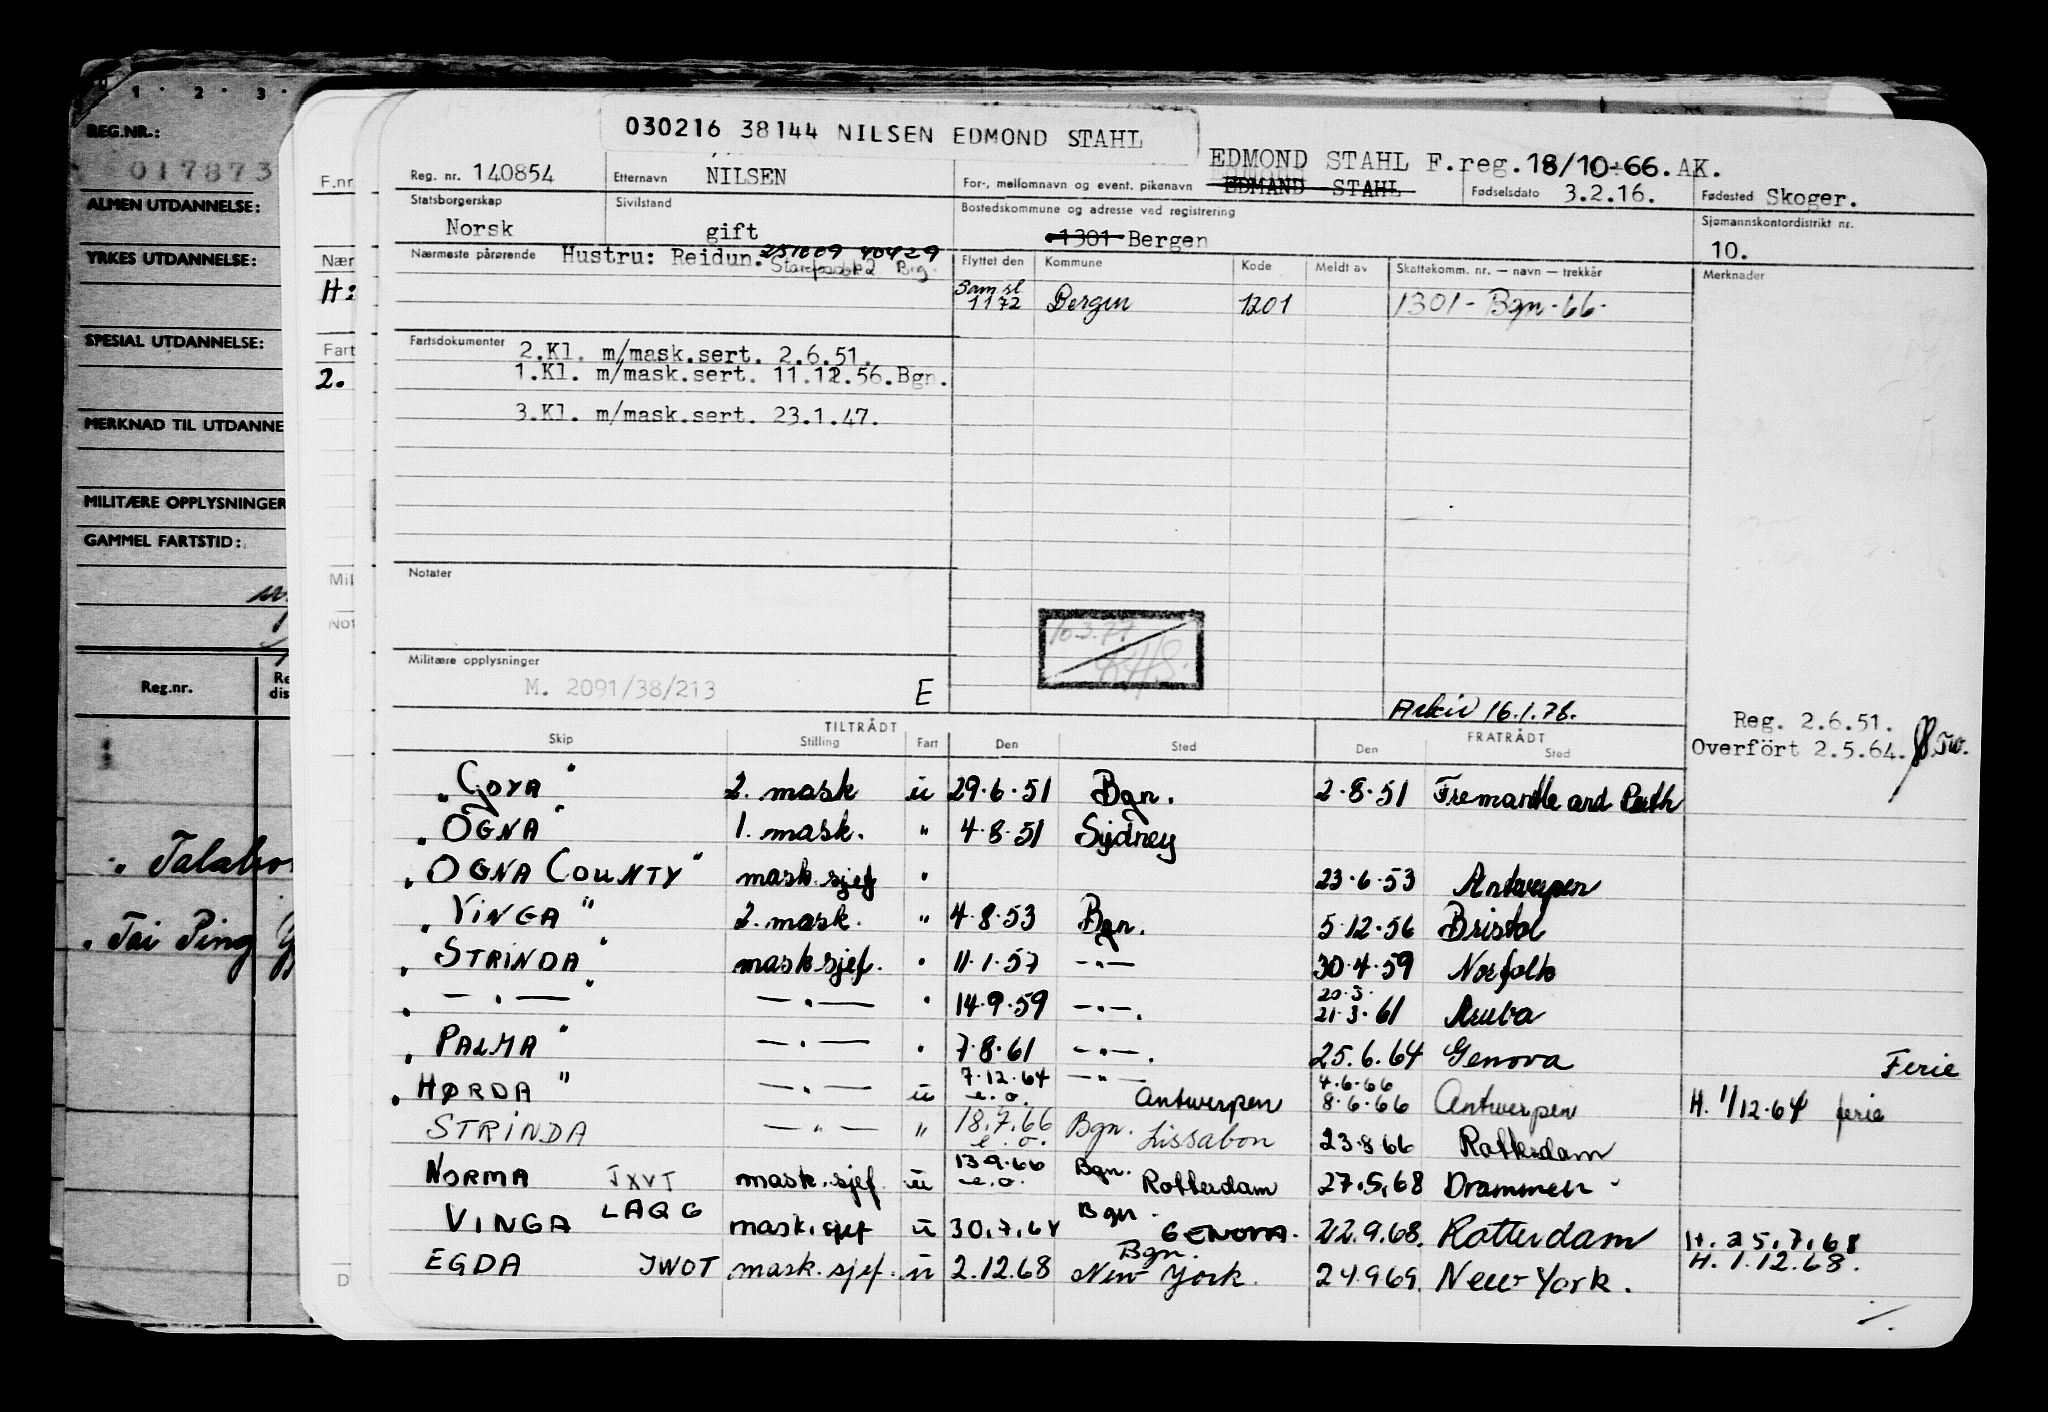 1 · 2 · 3 ·
REG.NR.:
017873
ALMEN UTDANNELSE:
YRKES UTDANNELSE:
SPESIAL UTDANNELSE:
MERKNAD TIL UTDANNE
MILITÆRE OPPLYSNINGER
GAMMEL FARTSTID:
Reg.nr.
Re
dis
„ Talabo
„ Tai Ping Y
F.nr
Nær
H:
Fart
2.
Mil
Not
D
030216 38144 NILSEN EDMOND STAHL
EDMOND STAHL F.reg.18/10-66.AK.
Reg. nr. 140854 Etternavn NILSEN For-, mellomnavn og event. pikenavn EDMAND STAHL Fødselsdato 3.2.16. Fødested Skoger.
Statsborgerskap Norsk Sivilstand gift Bostedskommune og adresse ved registrering 1301 Bergen Sjømannskontordistrikt nr. 10.
Nærmeste pårørende Hustru: Reidun. 251009 40429
Flyttet den Kommune Kode Meldt av Skattekomm. nr. — navn — trekkår Merknader
Sam sl
1172 Bergen 1201 1301 - Bgn - 66 -
Fartsdokumenter 2.Kl. m/mask.sert. 2.6.51.
1.Kl. m/mask.sert. 11.12.56.Bgn.
3.Kl. m/mask.sert. 23.1.47.
Notater
10.3.77
Militære opplysninger
M. 2091/38/213 E
Arkiv 16.1.78.
Reg. 2.6.51.
Overført 2.5.64.
TILTRÅDT FRATRÅDT
Skip Stilling Fart Den Sted Den Sted
„GOYA" 2. mask u 29.6.51 Bgn. 2.8.51 Fremantle and Perth
„OGNA" 1. mask. " 4.8.51 Sydney
„OGNA COUNTY" mask.sjef " 23.6.53 Antwerpen
„VINGA" 2. mask. " 4.8.53 Bgn. 5.12.56 Bristol
„STRINDA" mask.sjef. " 11.1.57 —"— 30.4.59 Norfolk
„—"—" —"— " 14.9.59 —"—. 20.3.
21.3.61 Aruba
„PALMA" —"— " 7.8.61 —"—. 25.6.64 Genova Ferie
„HØRDA" —"— u 7.12.64 e.o. —"— Antwerpen 4.6.66
8.6.66 Antwerpen H. 1/12.64 ferie
STRINDA —"— " 18.7.66 e.o. Bgn. Lissabon 23.8.66 Rotterdam
NORMA JXVT mask.sjef u 13.9.66 e.o. Bgn. Rotterdam 27.5.68 Drammen
VINGA LAQG mask.sjef u 30.7.68 Bgn. GENOVA. 22.9.68. Rotterdam H. 25.7.68
EGDA JWOT mask.sjef. u 2.12.68 Bgn. New York. 24.9.69. New York. H. 1.12.68.